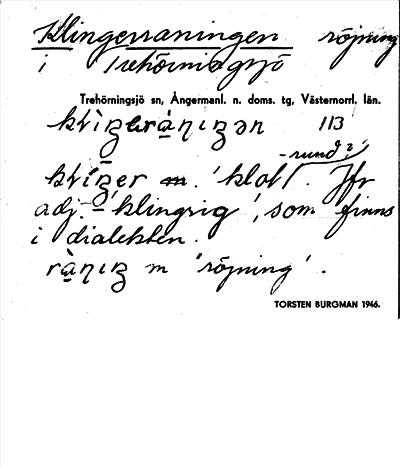 Klingerraningen röjning
i Trehörningsjö
Trehörningsjö sn, Ångermanl. n. doms. tg, Västernorrl. län.
113
- rund?
er m. 'klot'. Jfr
adj. 'klingrig', som finns
i dialekten.
m 'röjning'.
TORSTEN BURGMAN 1946.